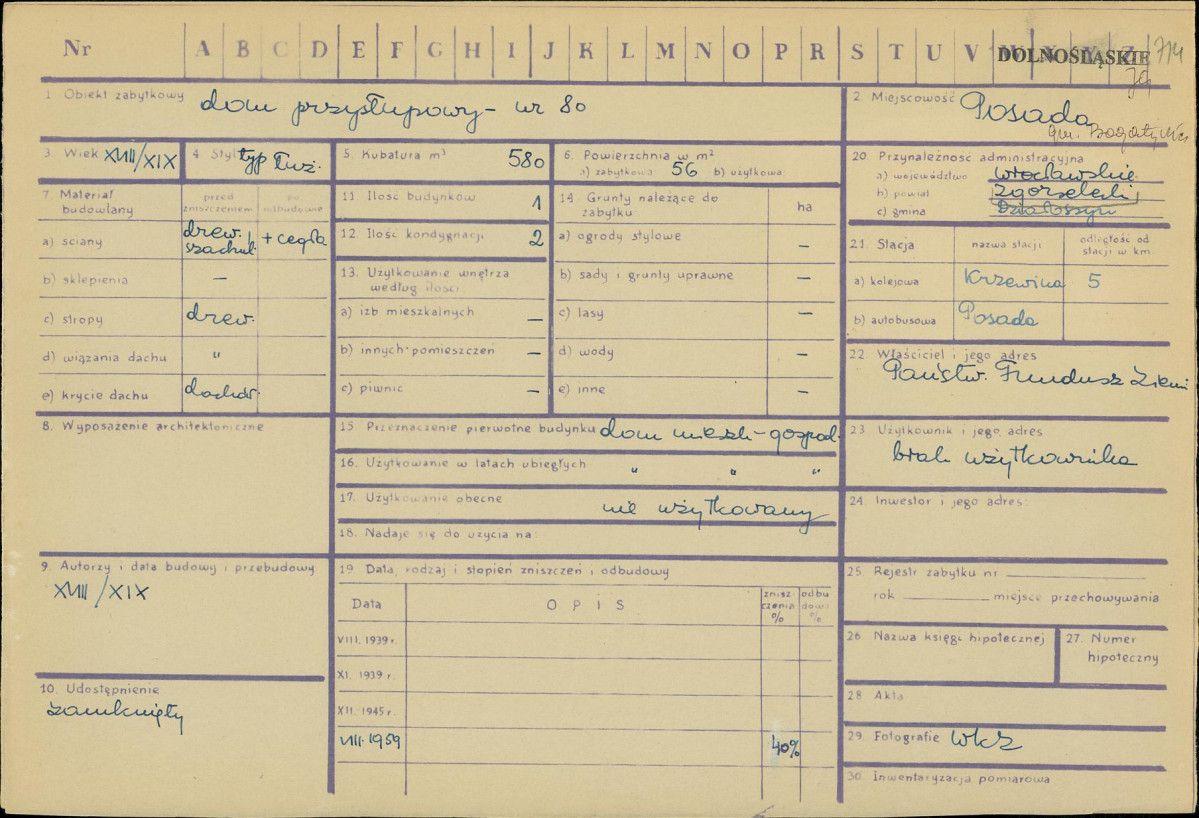 Nr A B C D E F G H I J K L M N O P R S T U V W X Y Z
DOLNOŚLĄSKIE 714
1. Obiekt zabytkowy dom przysłupowy - nr 80
2. Miejscowość Posada
gm. Bogatynia
3. Wiek XVIII/XIX
4. Styl typ łuż.
5. Kubatura m³ 580
6. Powierzchnia w m²
a) zabytkowa 56 b) użytkowa
7. Materiał budowlany
przed zniszczeniem
po odbudowie
a) ściany drew. szachul. + cegła
b) sklepienia —
c) stropy drew.
d) wiązania dachu "
e) krycie dachu dachów.
8. Wyposażenie architektoniczne
9. Autorzy i data budowy i przebudowy
XVIII/XIX
10. Udostępnienie
zamknięty
11. Ilość budynków 1
12. Ilość kondygnacji 2
13. Użytkowanie wnętrza według ilości:
a) izb mieszkalnych —
b) innych pomieszczeń —
c) piwnic —
14. Grunty należące do zabytku ha
a) ogrody stylowe —
b) sady i grunty uprawne —
c) lasy —
d) wody —
e) inne —
15. Przeznaczenie pierwotne budynku dom mieszk-gospod.
16. Użytkowanie w latach ubiegłych " " "
17. Użytkowanie obecne nie użytkowany
18. Nadaje się do użycia na:
19. Data, rodzaj i stopień zniszczeń i odbudowy
Data OPIS zniszczenia % odbudowa %
VIII. 1939 r.
XI. 1939 r.
XII. 1945 r.
VIII. 1959 40%
20. Przynależność administracyjna
a) województwo wrocławskie
b) powiat zgorzelecki
c) gmina Działoszyn
21. Stacja nazwa stacji odległość od stacji w km.
a) kolejowa Krzewina 5
b) autobusowa Posada
22. Właściciel i jego adres
Państw. Fundusz Ziemi
23. Użytkownik i jego adres
brak użytkownika
24. Inwestor i jego adres:
25. Rejestr zabytku nr
rok miejsce przechowywania
26. Nazwa księgi hipotecznej
27. Numer hipoteczny
28. Akta
29. Fotografie WKZ
30. Inwentaryzacja pomiarowa